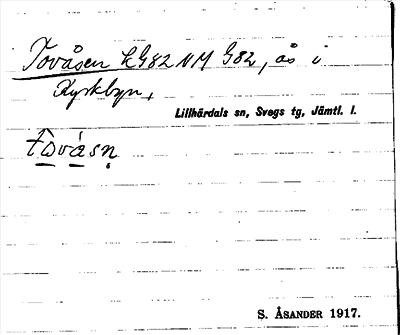 Tovåsen LG82 NM G82, ås i
Kyrkbyn,
Lillhärdals sn, Svegs tg, Jämtl. l.
tòvásn̥
S. ÅSANDER 1917.